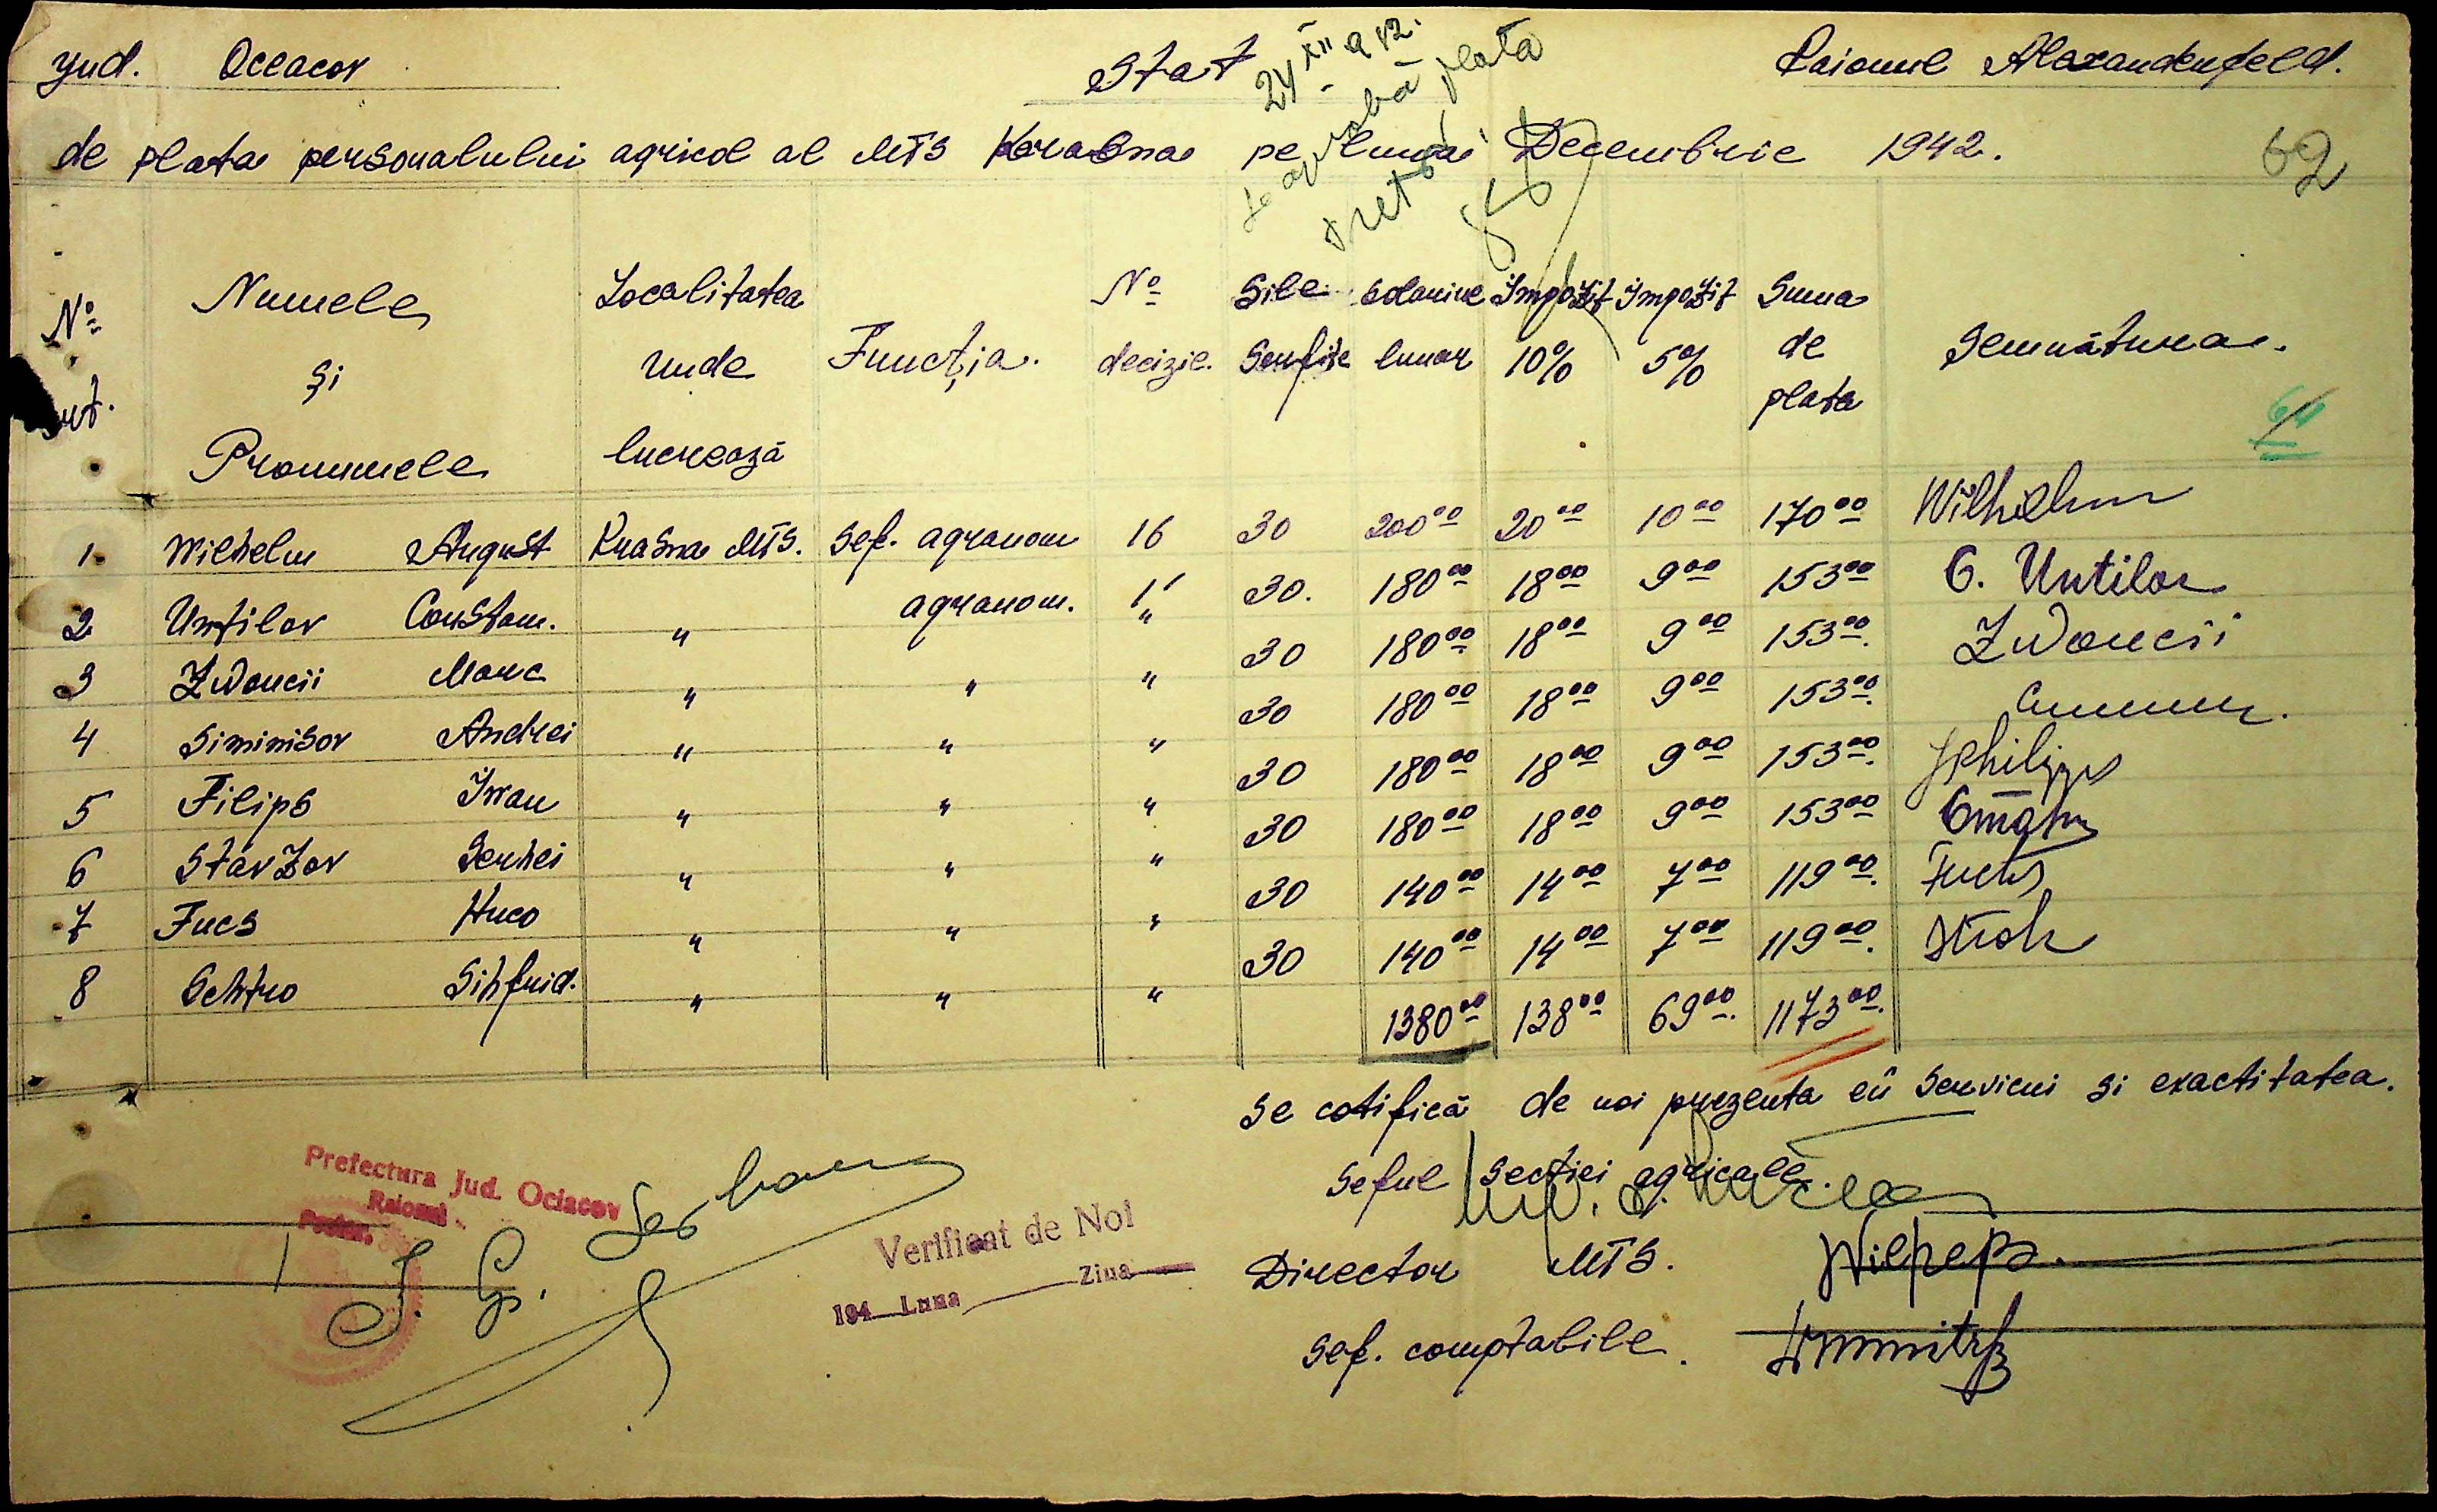 Jud. Oceacov
Stat
Raionul Alexanderfeld.
24 XII 942.
Se aprobă plata
Pretor,
de plata personalului agricol al MTS Krasna pe luna Decembrie 1942.
62
64
No. crt.
Numele și Pronumele
Localitatea unde lucrează
Funcția.
No. decizie.
Sile Serfite
Solariue lunar
Impozit 10%
Impozit 5%
Suma de plata
Semnătura.
1. Wilhelm August Krasna MTS. Sef. agranom 16 30 200.00 20.00 10.00 170.00 Wilhelm
2 Untilov Constan. " agranom. 1' " 30. 180.00 18.00 9.00 153.00 C. Untilov
3 Zwoncii Marc " " " 30 180.00 18.00 9.00 153.00. Zwoncii
4 Siminisor Andrei " " " 30 180.00 18.00 9.00 153.00.
5 Filips Iwan " " " 30 180.00 18.00 9.00 153.00. J Philipps
6 Stârzor Serhei " " " 30 180.00 18.00 9.00 153.00
7 Fucs Huco " " " 30 140.00 14.00 7.00 119.00. Fuchs
8 Schtro Sihfrid. " " " 30 140.00 14.00 7.00 119.00. Stroh
1380.00 138.00 69.00. 1173.00.
Se cotifică de noi prezenta en serviciu si exactitatea.
Seful sectiei agricole.
Director MTS.
Sef. comptabile.
Prefectura Jud. Ociacov
Raionul
I. G. Serban
Verificat de Noi
194 Luna Ziua